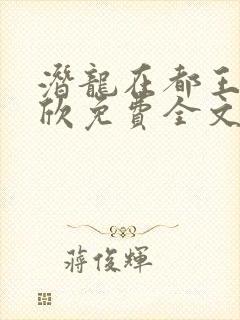 潛龍在都王
欣免費全文
蔣俊輝